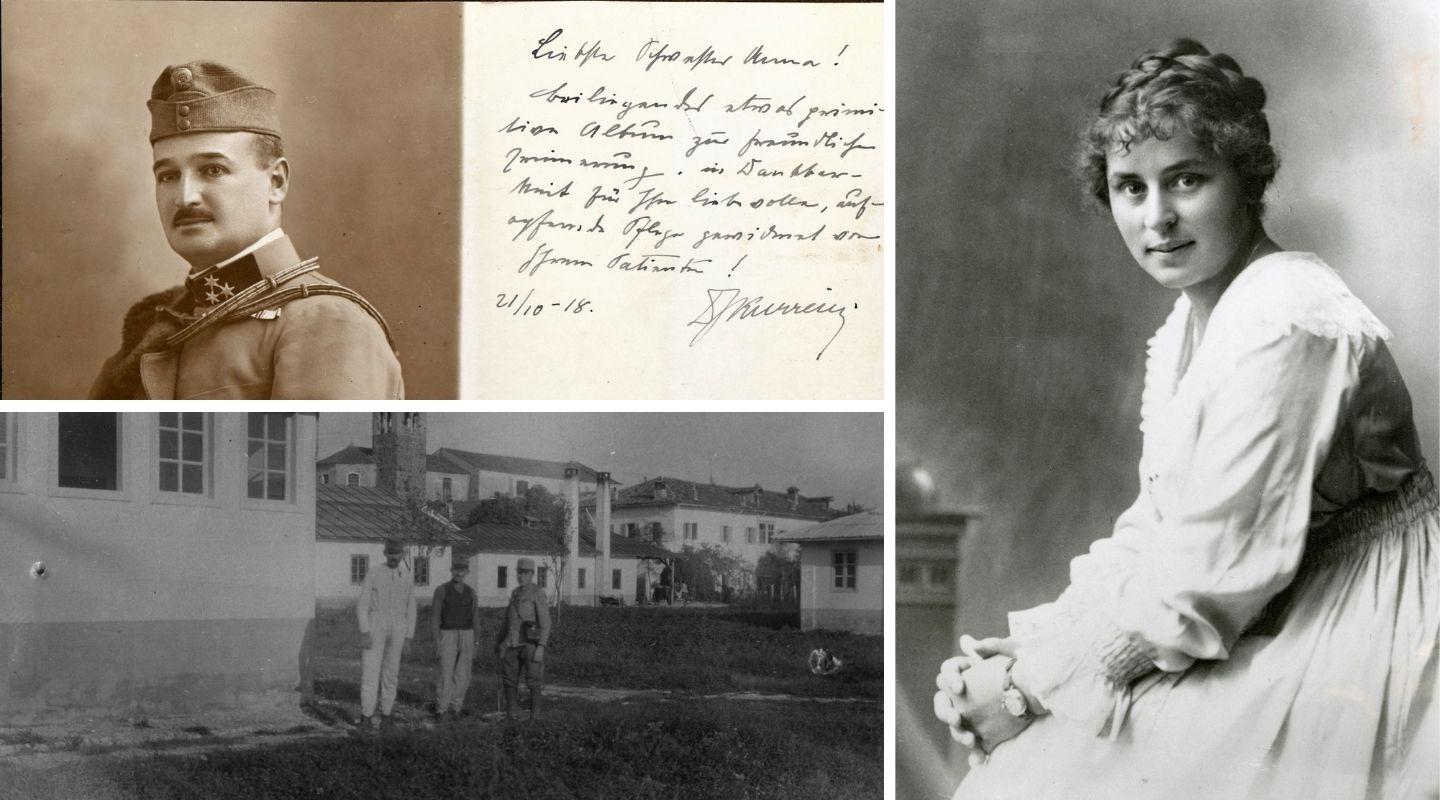 Liebste Schwester Anna!
beiliegendes etwas primi-
tive Album zur freundlichen
Erinnerung, in Dankbar-
keit für Ihre liebevolle, auf-
opfernde Pflege gewidmet von
Ihrem Patienten!
21/10-18.